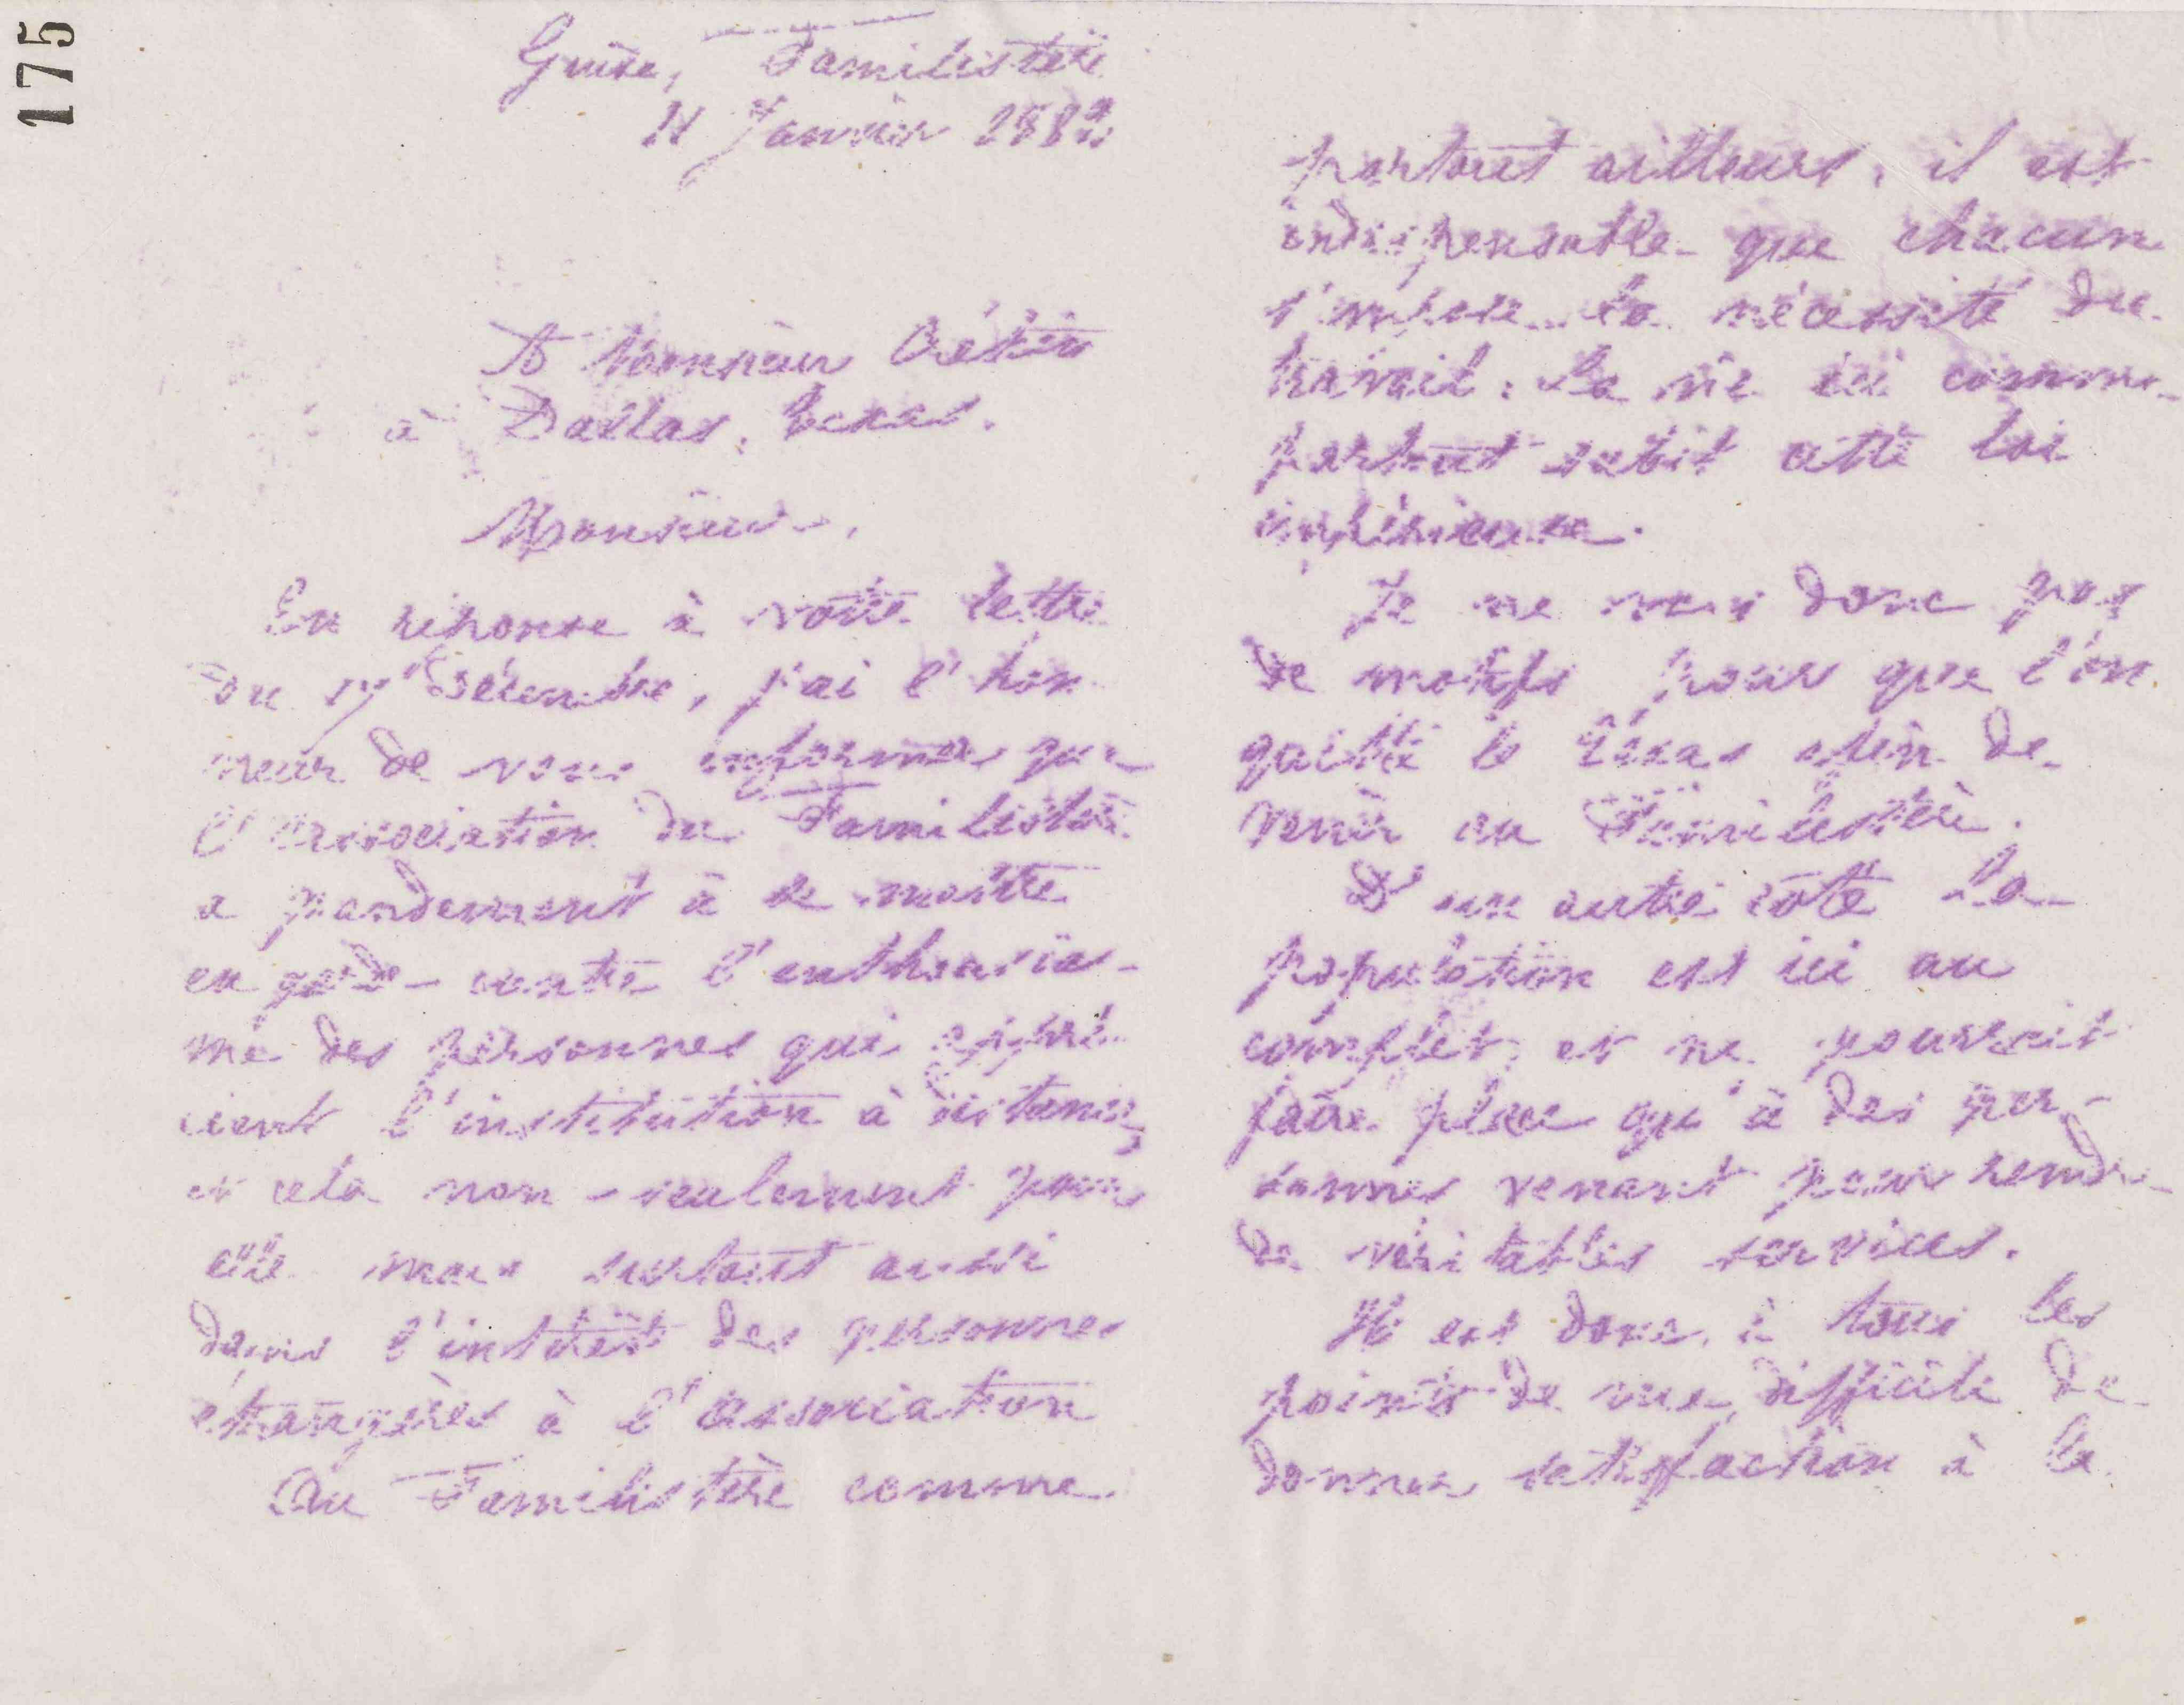 175
Guise, Familistère
Janvier 188
A Monsieur
à Dallas, Texas.
Monsieur,
En réponse à votre lettre
du 17 Décembre, j'ai l'hon
neur de vous informer que
l'association du Familistère
a grandement à se mettre
en garde contre l'enthousias-
me des personnes qui appré-
cient l'institution à distance,
et cela non-seulement pour
elle mais surtout aussi
dans l'intérêt des personnes
étrangères à l'association
Au Familistère comme
partout ailleurs, il est
indispensable que chacun
s'impose la nécessité du
travail : la vie ici comme
partout subit cette loi
impérieuse.
Je ne vois donc pas
de motifs pour que l'on
quitte le Texas afin de
venir au Familistère.
D'un autre côté la
population est ici au
complet et ne pourrait
faire place qu'à des per-
sonnes venant pour rendre
de véritables services.
Il est donc, à tous les
points de vue, difficile de
donner satisfaction à la